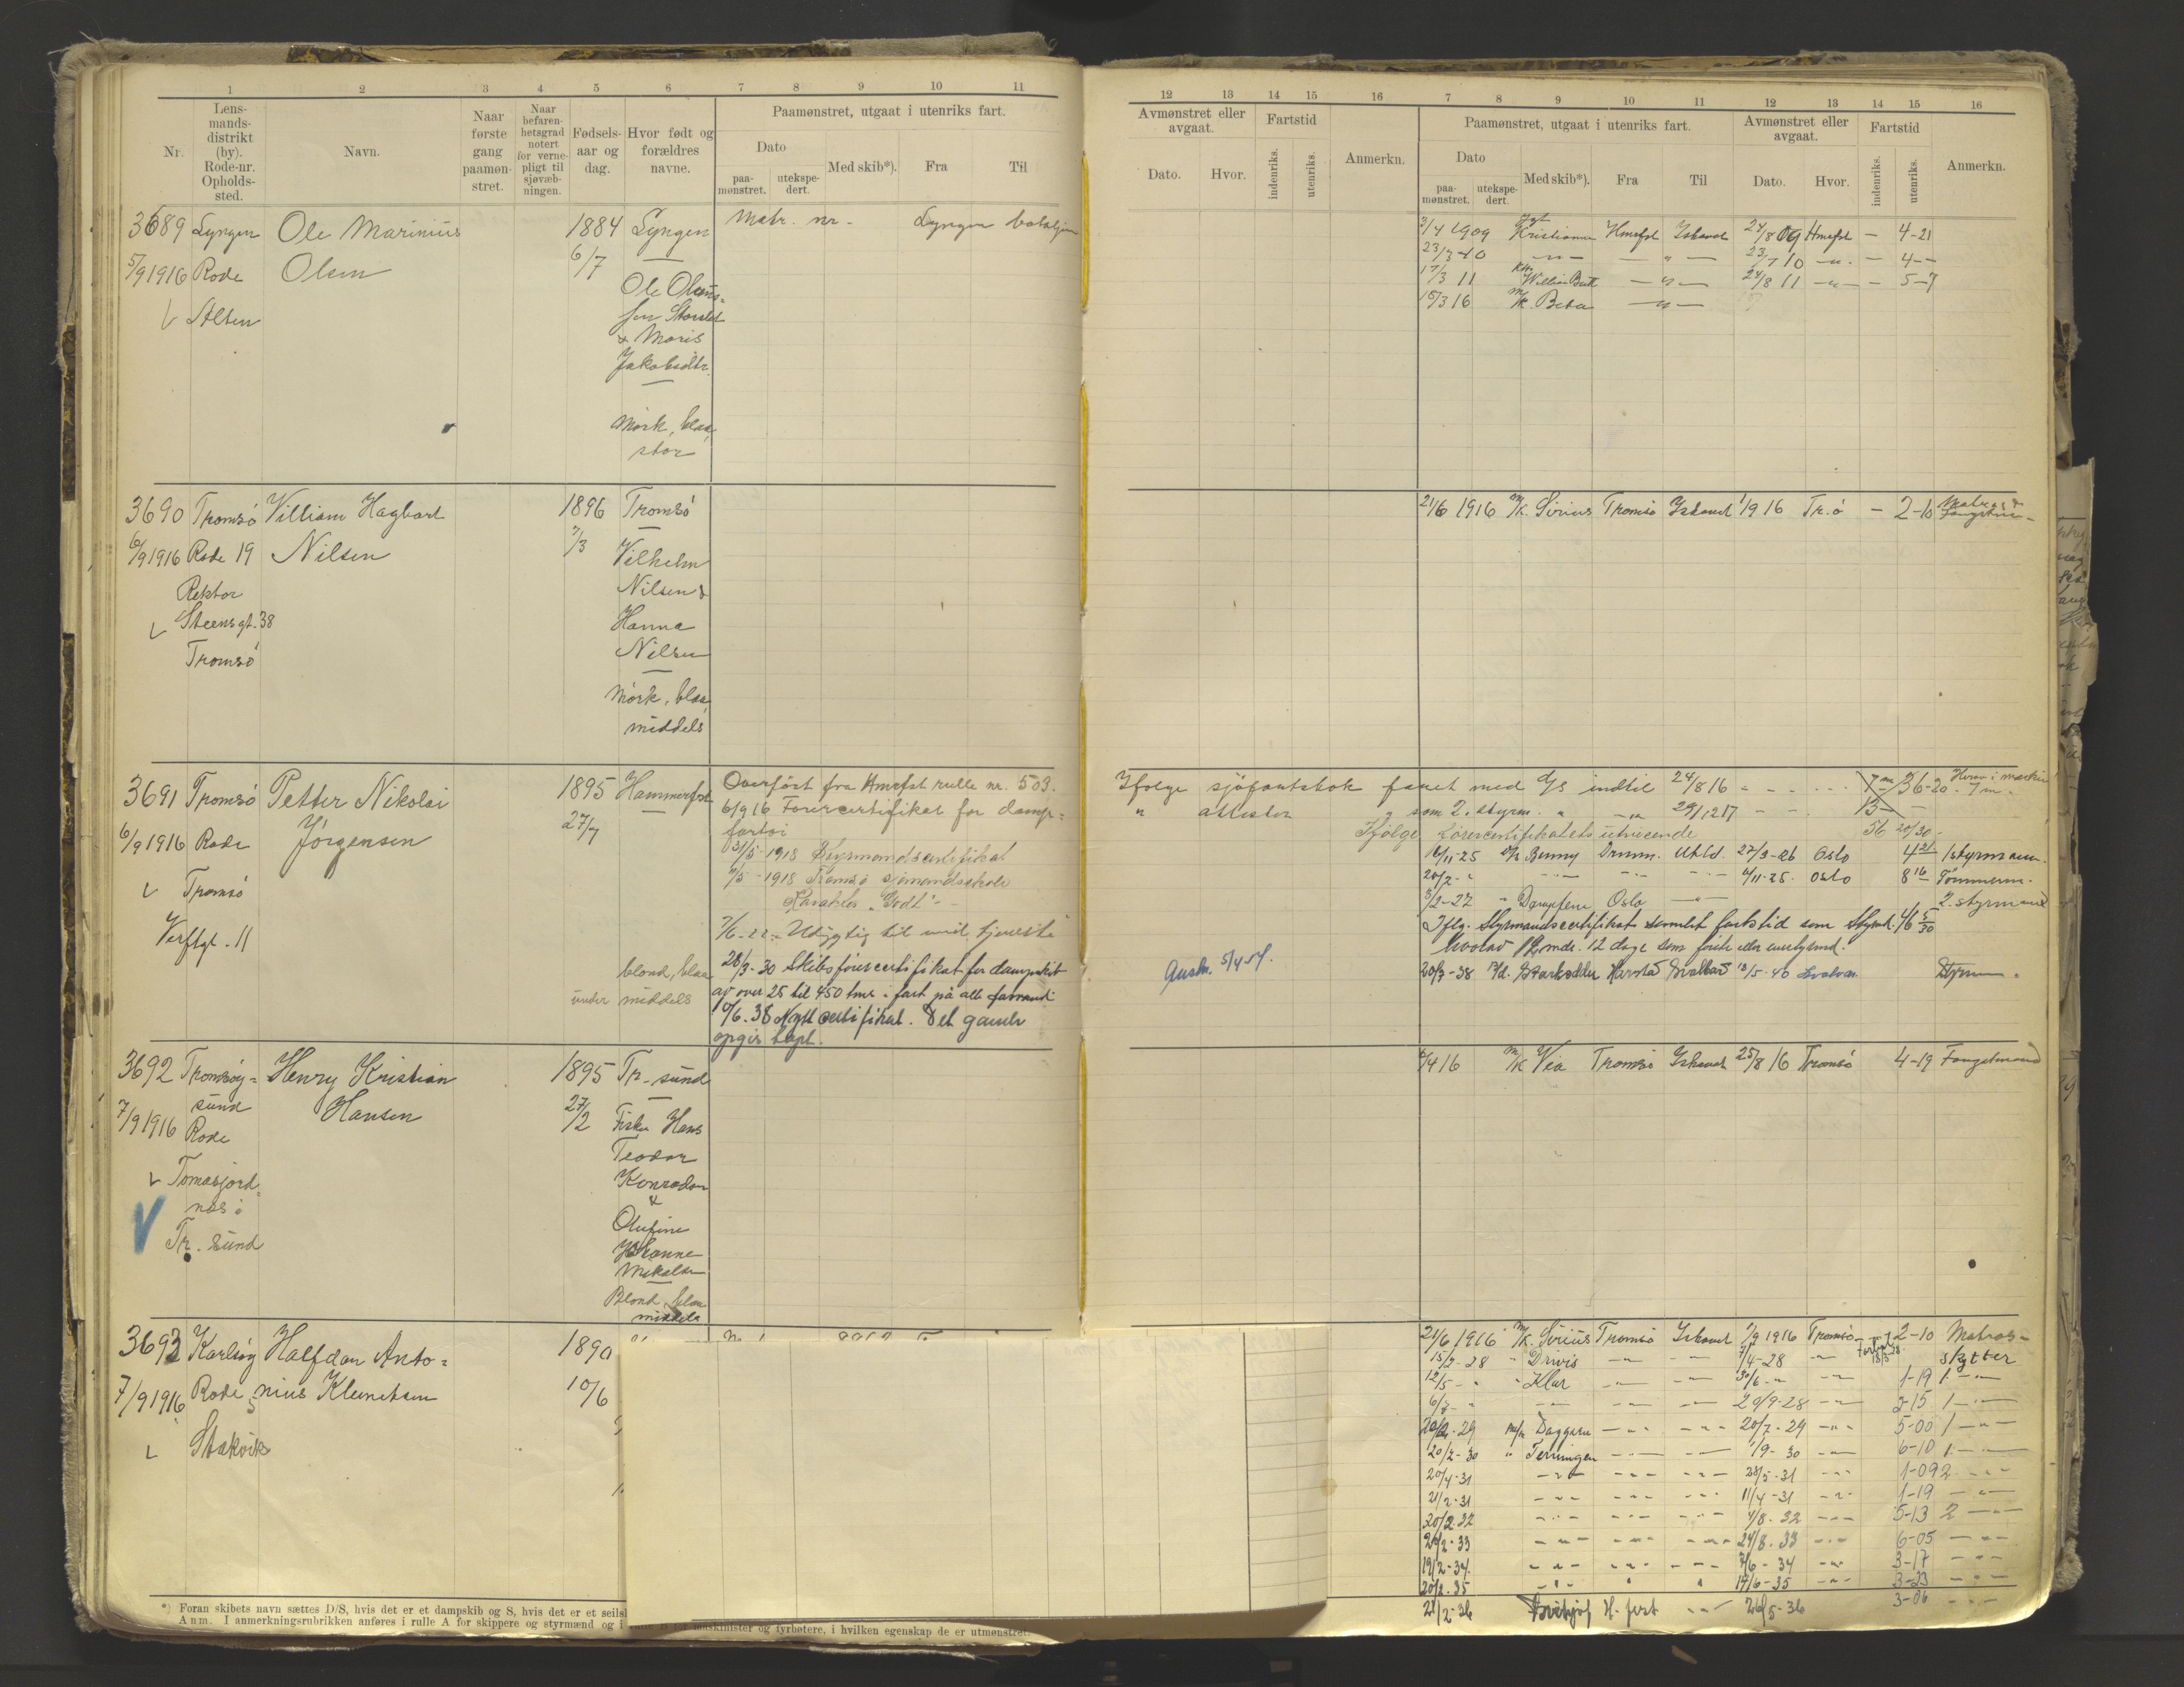 1 2 3 4 5 6 7 8 9 10 11
Nr.
Lens-
mands-
distrikt
(by).
Rode-nr.
Opholds-
sted.
Navn.
Naar
første
gang
paamøn-
stret.
Naar
befaren-
hetsgrad
notert
for verne-
pligt til
sjøvæb-
ningen.
Fødsels-
aar og
dag.
Hvor født og
forældres
navne.
Paamønstret, utgaat i utenriks fart.
Dato
paa-
mønstret.
utekspe-
dert.
Med skib*).
Fra
Til
12 13 14 15 16 7 8 9 10 11 12 13 14 15 16
Avmønstret eller
avgaat.
Dato.
Hvor.
Fartstid
indenriks.
utenriks.
Anmerkn.
Paamønstret, utgaat i utenriks fart.
Dato
paa-
mønstret.
utekspe-
dert.
Med skib*).
Fra
Til
Avmønstret eller
avgaat.
Dato.
Hvor.
Fartstid
indenriks.
utenriks.
Anmerkn.
3689 Lyngen Ole Marinius 1884 Lyngen Matr. nr. - Lyngen bataljon
5/9 1916 Rode Olsen 6/7
Ole Olaus-
sen Storslet
& Maris
Jakobsdtr.
Mørk, blaa,
stor
3/4 1909 Jgt Kristianna Hmfst Ishavet 24/8 09 Hmfst - 4-21
23/3-10 -"- -"- 23/7 10 -"- 4--
17/3 11 -"- 24/8 11 -"- - 5-7
15/3 16 M/K. Beta -"-
3690 Tromsö William Hagbart 1896 Tromsö
6/9 1916 Rode 19 Nilsen 7/3
Rektor
Steensgt. 38
Tromsö
Vilhelm
Nilsen &
Hanna
Nilsen
Mörk, blaa,
middels
21/6 1916 M/K. Sirius Tromsö Ishavet 1/9 16 Tr.ö - 2-10 Matros &
3691 Tromsö Petter Nikolai 1895 Hammerfst
6/9 1916 Rode Jörgensen 27/7
Tromsö
Verftgt. 11
blond, blaa
under middels
Overført fra Hmfst rulle nr. 503.
6/9 16 Førercertifikat for damp-
fartøi
31/5-1918 Styrmandscertifikat
7/5-1918 Tromsö sjömandsskole
Karakter "Godt"
7/6-22 - Udygtig til mil. tjeneste
28/3-30 Skibsförercertifikat for dampskib
af over 25 til 450 tons i fart på alle farvand
10/6.38 Nytt certifikat. Det gamle
opgis tapt.
Ifølge sjöfartsbok faret med D/S indtil 24/8 16 - - 36-20 Herav i maskin 7 m.
" attester " som 2. styrm. " -"- 29/12 17 - - 13-
Ifølge førercertifikatets utvisende 56 20/30
16/11-25 D/S Bunny Dramm. Utld. 27/3-26 Oslo 4 21 1 styrmann.
20/2-" -"- -"- -"- 4/11-25. Oslo 8 16 Tømmerm.
3/2-27 " Oslo -"- 2. styrmand
Iflg. Styrmandscertifikat samlet fartstid som Styrmd. 46 5/30
hvorav 12 mdr. 12 dage som første eller enestyrmd.
Ausk. 5/4 57.
20/3-38 Harstad Svalbard 13/5-40 Styrm.
3692 Tromsöy- Henry Kristian 1895 Tr-sund
sund
7/9 1916 Rode Hansen 27/2
Tomasjord-
nes i
Tr. sund
Fisker Hans
Teodor
Konradsen
&
Olufine
Johanne
Mikalsen
Blond, blaa
middels
4/4 16 M/K Via Tromsö Ishavet 25/8 16 Tromsö 4-19 Fangstmand
3693 Karlsöy Halfdan Anto- 1890
7/9 1916 Rode 5 nius Klemetsen 10/6
Stakvik
21/6 1916 M/K. Sirius Tromsö Ishavet 1/9 1916 Tromsö 2-10 Matros-
15/2-28 " Drivis -"- -"- 7/4-28 -"- skytter
12/5-" " Klar -"- -"- 30/6-" -"- 1-19 1 -"-
6/7-" -"- -"- -"- 20/9-28 -"- 2-15 1 -"-
20/2-29 M/K Daggry -"- -"- 20/7-29 -"- 5-00 1 -"-
20/2-30 " Terningen -"- -"- 1/9-30 -"- 6-10 1 -"-
20/4-31 -"- -"- -"- 28/5-31 -"- 1-09 2 -"-
21/2-31 -"- -"- -"- 11/4-31 -"- 1-19 -"-
20/2.32 -"- -"- -"- 4/8.32 -"- 5-13 2 -"-
20/2-33 -"- -"- -"- 24/8.33 -"- 6-05 -"-
19/2-34. -"- -"- -"- 7/6-34 -"- 3-17 -"-
20/2.35 -"- " " 14/6-35 -"- 3-23 -"-
21/2-36 H-fest -"- 26/5-36 3-06 -"-
*) Foran skibets navn sættes D/S, hvis det er et dampskib og S, hvis det er et seilsk
Anm. I anmerkningsrubrikken anføres i rulle A for skippere og styrmænd og i rulle B for maskinister og fyrbøtere, i hvilken egenskap de er utmønstret.